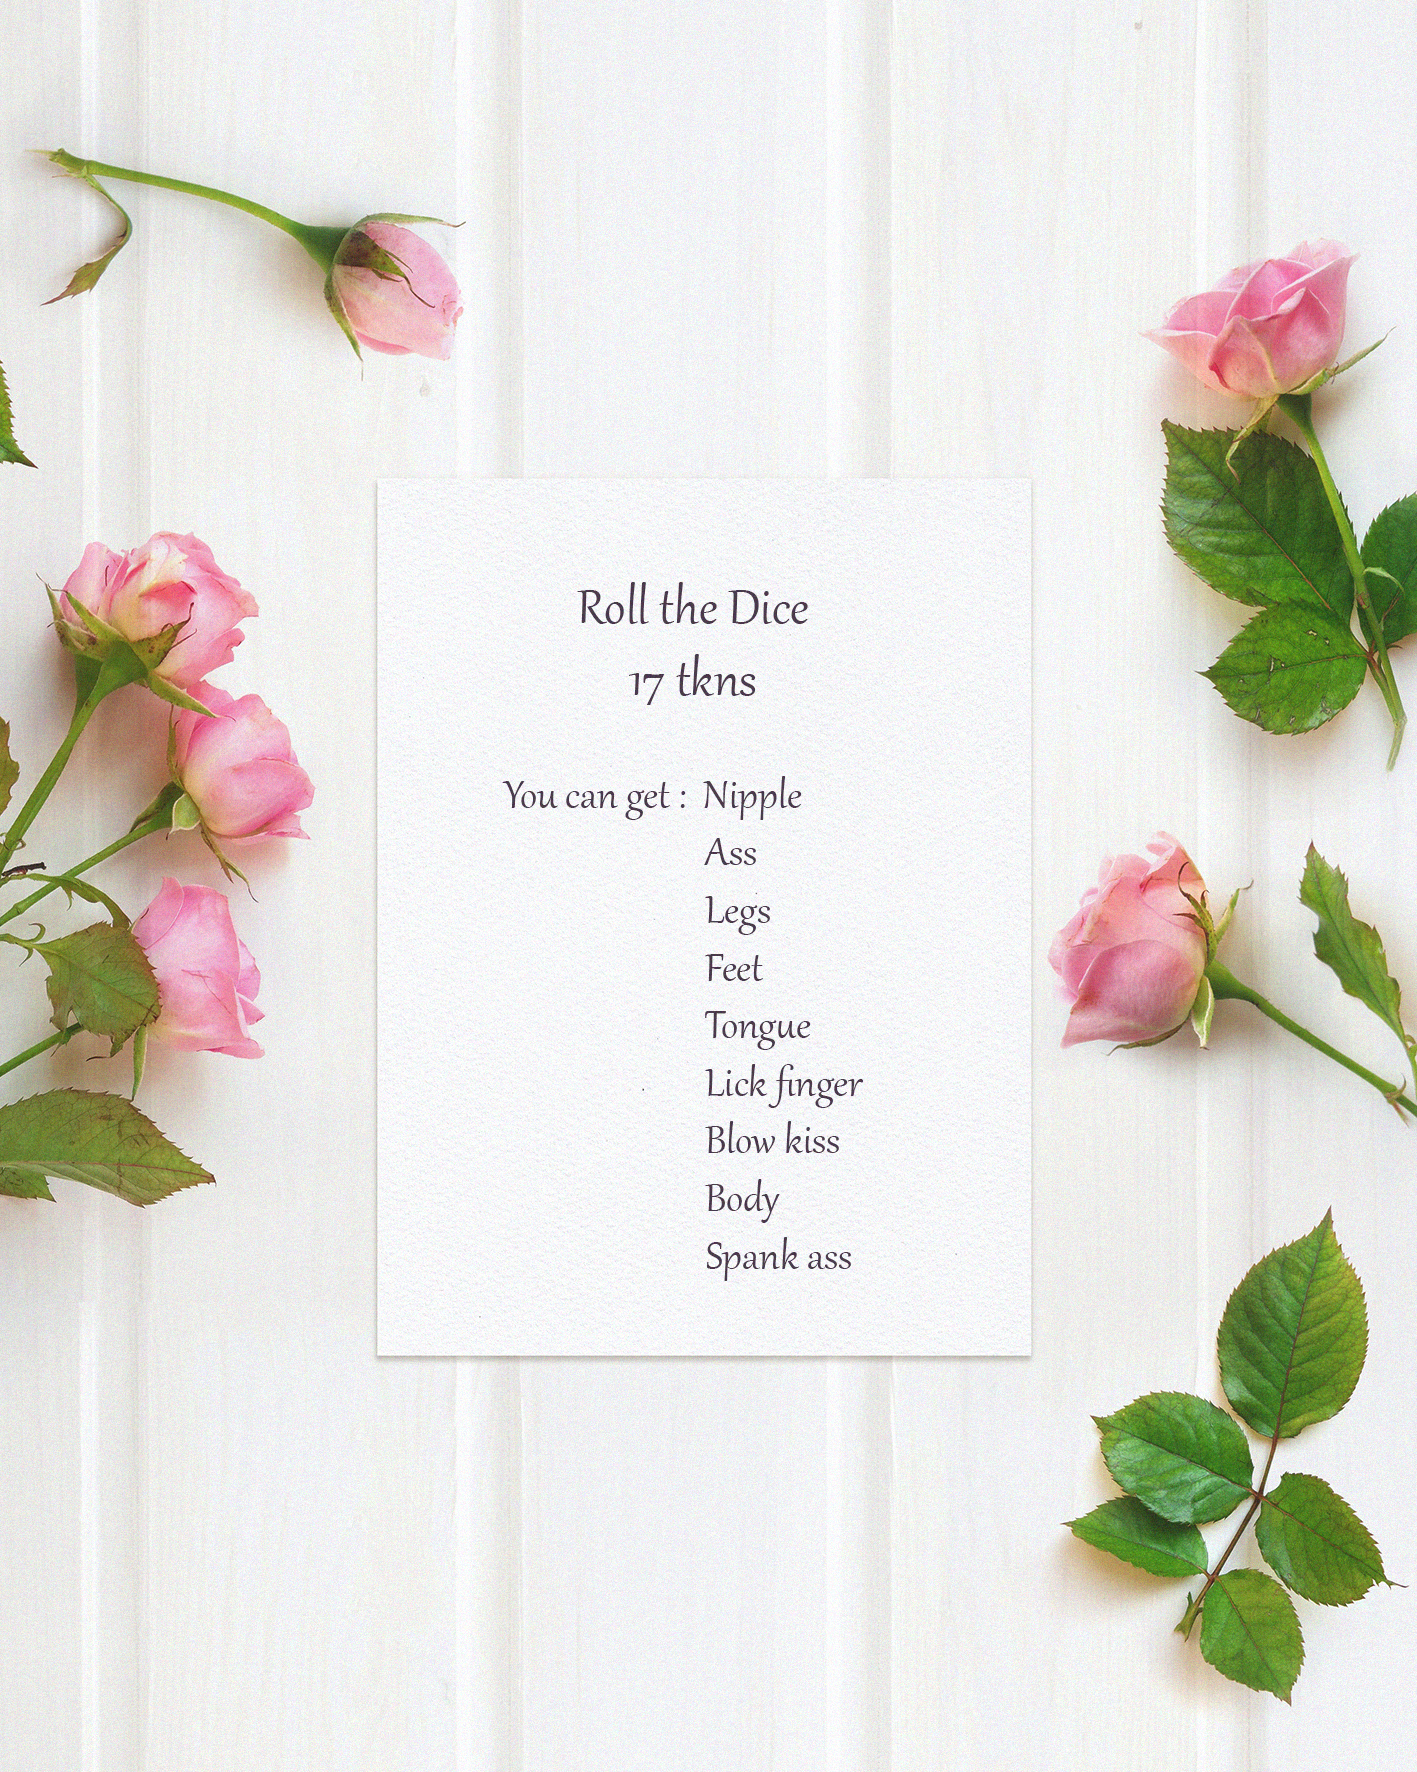 Roll the Dice
17 tkns
You can get : Nipple
Ass
Legs
Feet
Tongue
Lick finger
Blow kiss
Body
Spank ass